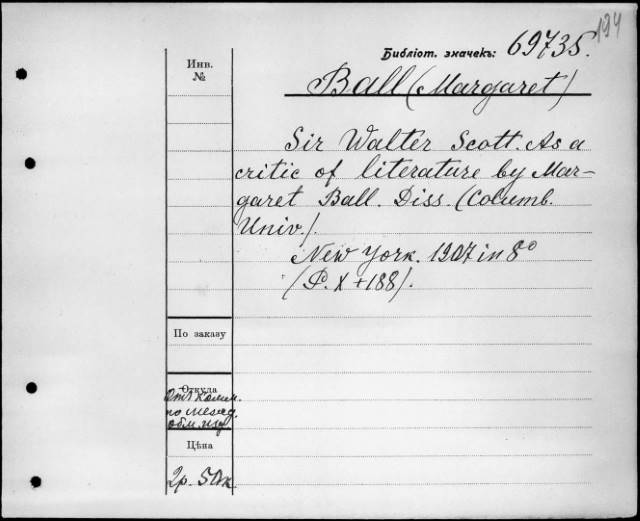 194
Библіот. значекъ: 69735.
Инв.
№
Ball (Margaret)
Sir Walter Scott. As a
critic of literature by Mar-
garet Ball. Diss. (Columb.
Univ.).
New York. 1907 in 8°
(P. X + 188).
По заказу
Откуда
Отъ Комм.
по межд.
обм. изд.
Цѣна
2р. 50к